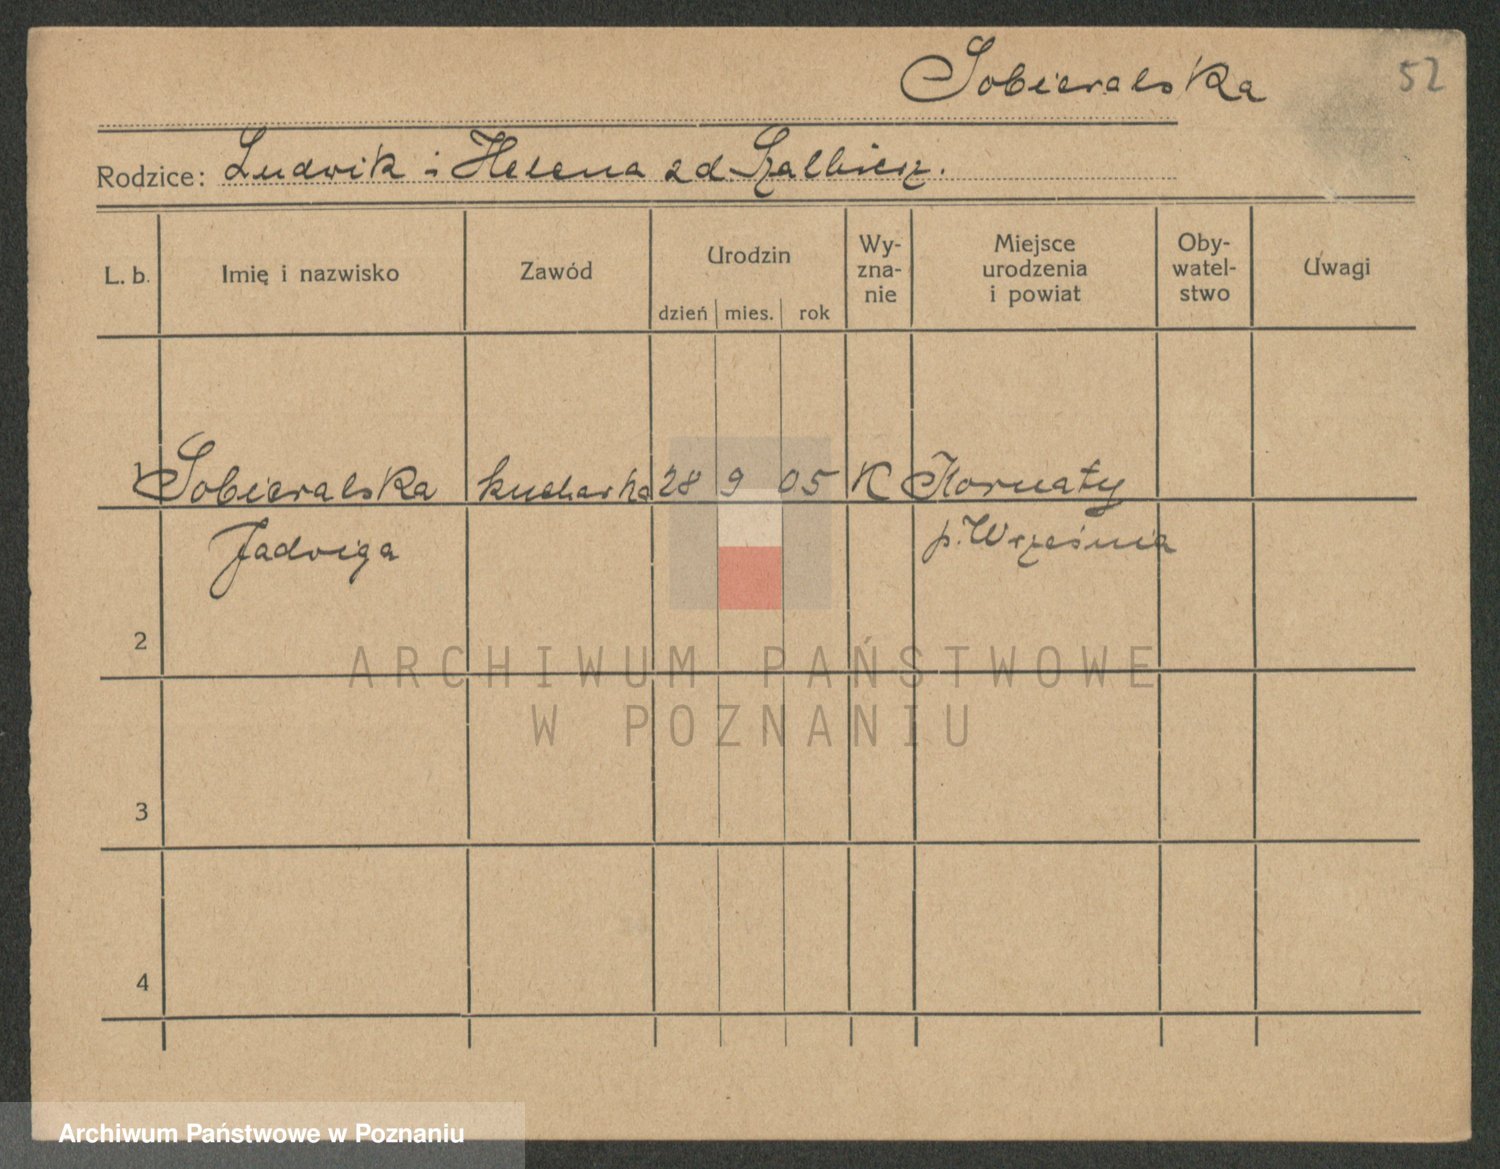 Sobieralska
52
Rodzice: Ludwik i Helena zd. Szalbierz.
L. b. Imię i nazwisko Zawód Urodzin dzień mies. rok Wy-zna-nie Miejsce urodzenia i powiat Oby-watel-stwo Uwagi
1 Sobieralska kucharka 28 9 05 K Kornaty
Jadwiga p. Września
2
ARCHIWUM PAŃSTWOWE
W POZNANIU
3
4
Archiwum Państwowe w Poznaniu